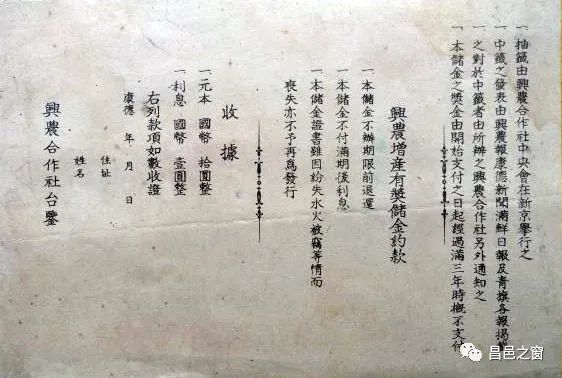 一 抽籤由興農合作社中央會在新京舉行之
一 中籤之發表由興農報康德新聞滿鮮日報及青旗各報揭
一 之對於中籤者由所辦之興農合作社另外通知之
一 本儲金之獎金由開始支付之日起經過滿三年時概不支付
興農增產有獎儲金約款
一 本儲金不辦期限前退還
一 本儲金不付滿期後利息
一 本儲金證書雖因紛失水火被竊等情而
喪失亦不予再爲發行
收據
一 元本 國幣 拾圓整
一 利息 國幣 壹圓整
右列款項如數收證
康德 年 月 日
住址
姓名
興農合作社台鑒
昌邑之窗